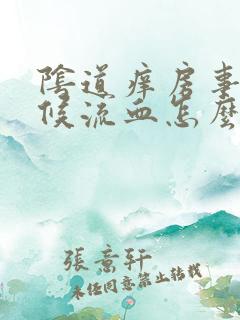 陰道痒房事
候流血怎麽
張意軒
未经同意禁止转载